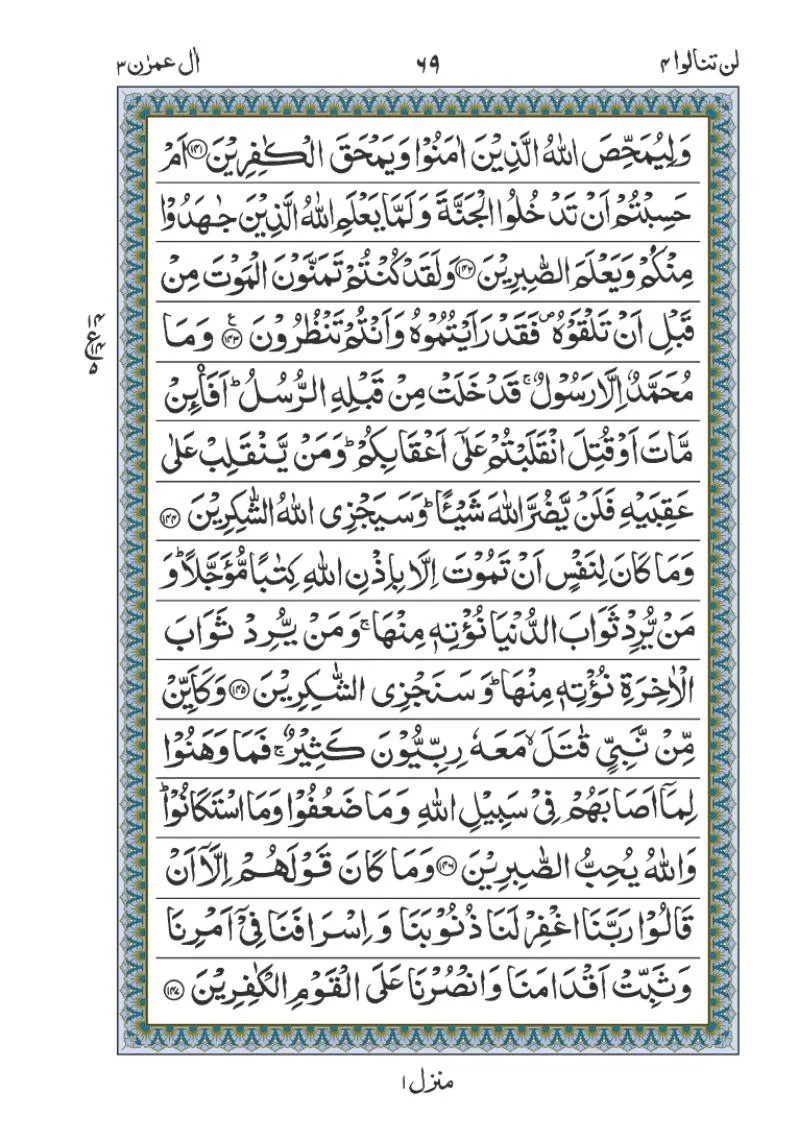 لن تنالوا ۴ ۶۹ اٰل عمرٰن ۳
وَلِيُمَحِّصَ اللّٰهُ الَّذِيْنَ اٰمَنُوْا وَيَمْحَقَ الْكٰفِرِيْنَ ۝۱۴۱ اَمْ
حَسِبْتُمْ اَنْ تَدْخُلُوا الْجَنَّةَ وَلَمَّا يَعْلَمِ اللّٰهُ الَّذِيْنَ جٰهَدُوْا
مِنْكُمْ وَيَعْلَمَ الصّٰبِرِيْنَ ۝۱۴۲ وَلَقَدْ كُنْتُمْ تَمَنَّوْنَ الْمَوْتَ مِنْ
قَبْلِ اَنْ تَلْقَوْهُ ۪ فَقَدْ رَاَيْتُمُوْهُ وَاَنْتُمْ تَنْظُرُوْنَ ۝۱۴۳ ع وَمَا
۱۴
ع
۱۴
۵
مُحَمَّدٌ اِلَّا رَسُوْلٌ ۚ قَدْ خَلَتْ مِنْ قَبْلِهِ الرُّسُلُ ؕ اَفَا۟ئِنْ
مَّاتَ اَوْ قُتِلَ انْقَلَبْتُمْ عَلٰٓى اَعْقَابِكُمْ ؕ وَمَنْ يَّنْقَلِبْ عَلٰى
عَقِبَيْهِ فَلَنْ يَّضُرَّ اللّٰهَ شَيْـًٔا ؕ وَسَيَجْزِى اللّٰهُ الشّٰكِرِيْنَ ۝۱۴۴
وَمَا كَانَ لِنَفْسٍ اَنْ تَمُوْتَ اِلَّا بِاِذْنِ اللّٰهِ كِتٰبًا مُّؤَجَّلًا ؕ وَ
مَنْ يُّرِدْ ثَوَابَ الدُّنْيَا نُؤْتِهٖ مِنْهَا ۚ وَمَنْ يُّرِدْ ثَوَابَ
الْاٰخِرَةِ نُؤْتِهٖ مِنْهَا ؕ وَسَنَجْزِى الشّٰكِرِيْنَ ۝۱۴۵ وَكَاَيِّنْ
مِّنْ نَّبِىٍّ قٰتَلَ ۙ مَعَهٗ رِبِّيُّوْنَ كَثِيْرٌ ۚ فَمَا وَهَنُوْا
لِمَاۤ اَصَابَهُمْ فِىْ سَبِيْلِ اللّٰهِ وَمَا ضَعُفُوْا وَمَا اسْتَكَانُوْا ؕ
وَاللّٰهُ يُحِبُّ الصّٰبِرِيْنَ ۝۱۴۶ وَمَا كَانَ قَوْلَهُمْ اِلَّاۤ اَنْ
قَالُوْا رَبَّنَا اغْفِرْ لَنَا ذُنُوْبَنَا وَاِسْرَافَنَا فِىْۤ اَمْرِنَا
وَثَبِّتْ اَقْدَامَنَا وَانْصُرْنَا عَلَى الْقَوْمِ الْكٰفِرِيْنَ ۝۱۴۷
منزل ۱